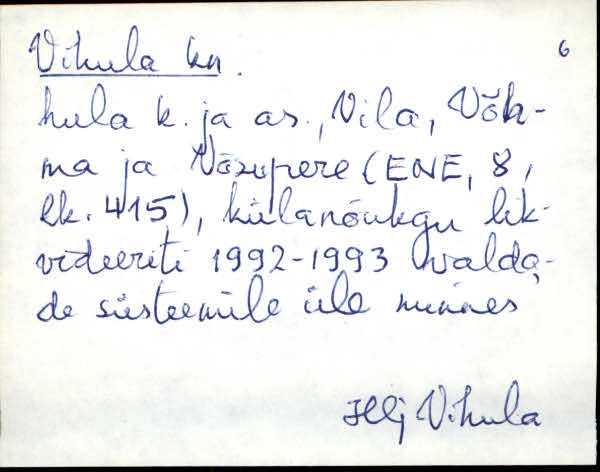 Vihula kn.
6
hula k. ja as., Vila, Võh-
ma ja Võsupere (ENE, 8,
lk. 415), külanõukgu lik-
videeriti 1992-1993 valda-
de süsteemile üle minnes
Hlj Vihula